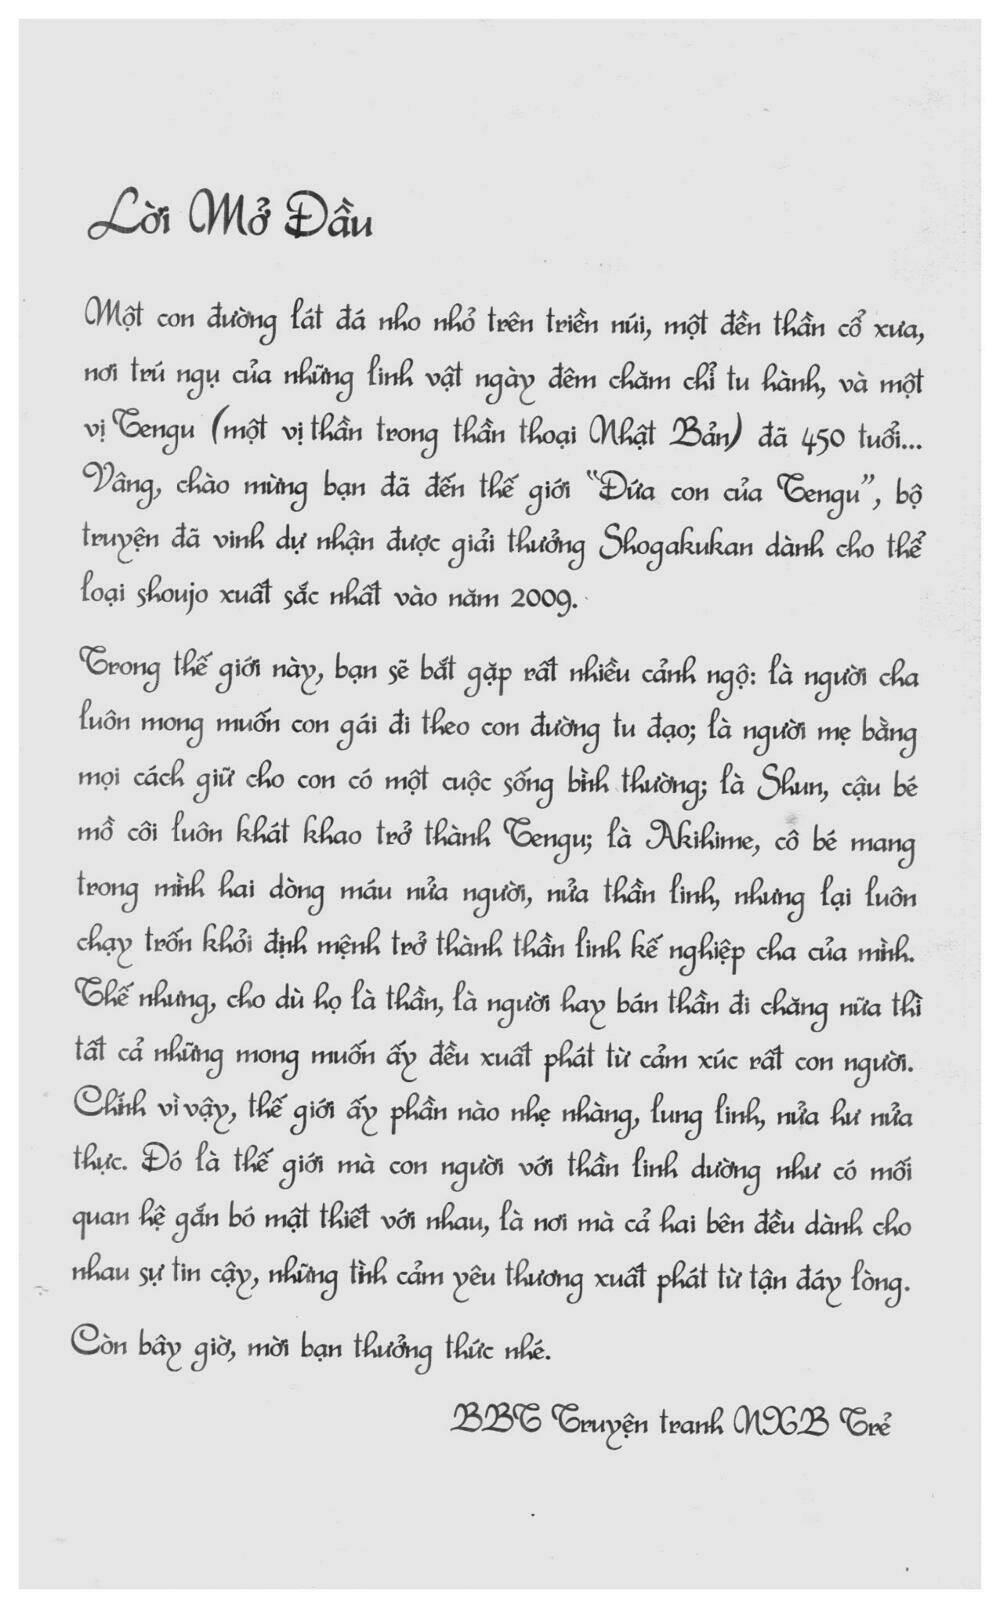 Lời Mở Đầu
Một con đường lát đá nho nhỏ trên triền núi, một đền thần cổ xưa,
nơi trú ngụ của những linh vật ngày đêm chăm chỉ tu hành, và một
vị Tengu (một vị thần trong thần thoại Nhật Bản) đã 450 tuổi...
Vâng, chào mừng bạn đã đến thế giới “Đứa con của Tengu”, bộ
truyện đã vinh dự nhận được giải thưởng Shogakukan dành cho thể
loại shoujo xuất sắc nhất vào năm 2009.
Trong thế giới này, bạn sẽ bắt gặp rất nhiều cảnh ngộ: là người cha
luôn mong muốn con gái đi theo con đường tu đạo; là người mẹ bằng
mọi cách giữ cho con có một cuộc sống bình thường; là Shun, cậu bé
mồ côi luôn khát khao trở thành Tengu; là Akihime, cô bé mang
trong mình hai dòng máu nửa người, nửa thần linh, nhưng lại luôn
chạy trốn khỏi định mệnh trở thành thần linh kế nghiệp cha của mình.
Thế nhưng, cho dù họ là thần, là người hay bán thần đi chăng nữa thì
tất cả những mong muốn ấy đều xuất phát từ cảm xúc rất con người.
Chính vì vậy, thế giới ấy phần nào nhẹ nhàng, lung linh, nửa hư nửa
thực. Đó là thế giới mà con người với thần linh dường như có mối
quan hệ gắn bó mật thiết với nhau, là nơi mà cả hai bên đều dành cho
nhau sự tin cậy, những tình cảm yêu thương xuất phát từ tận đáy lòng.
Còn bây giờ, mời bạn thưởng thức nhé.
BBT Truyện tranh NXB Trẻ